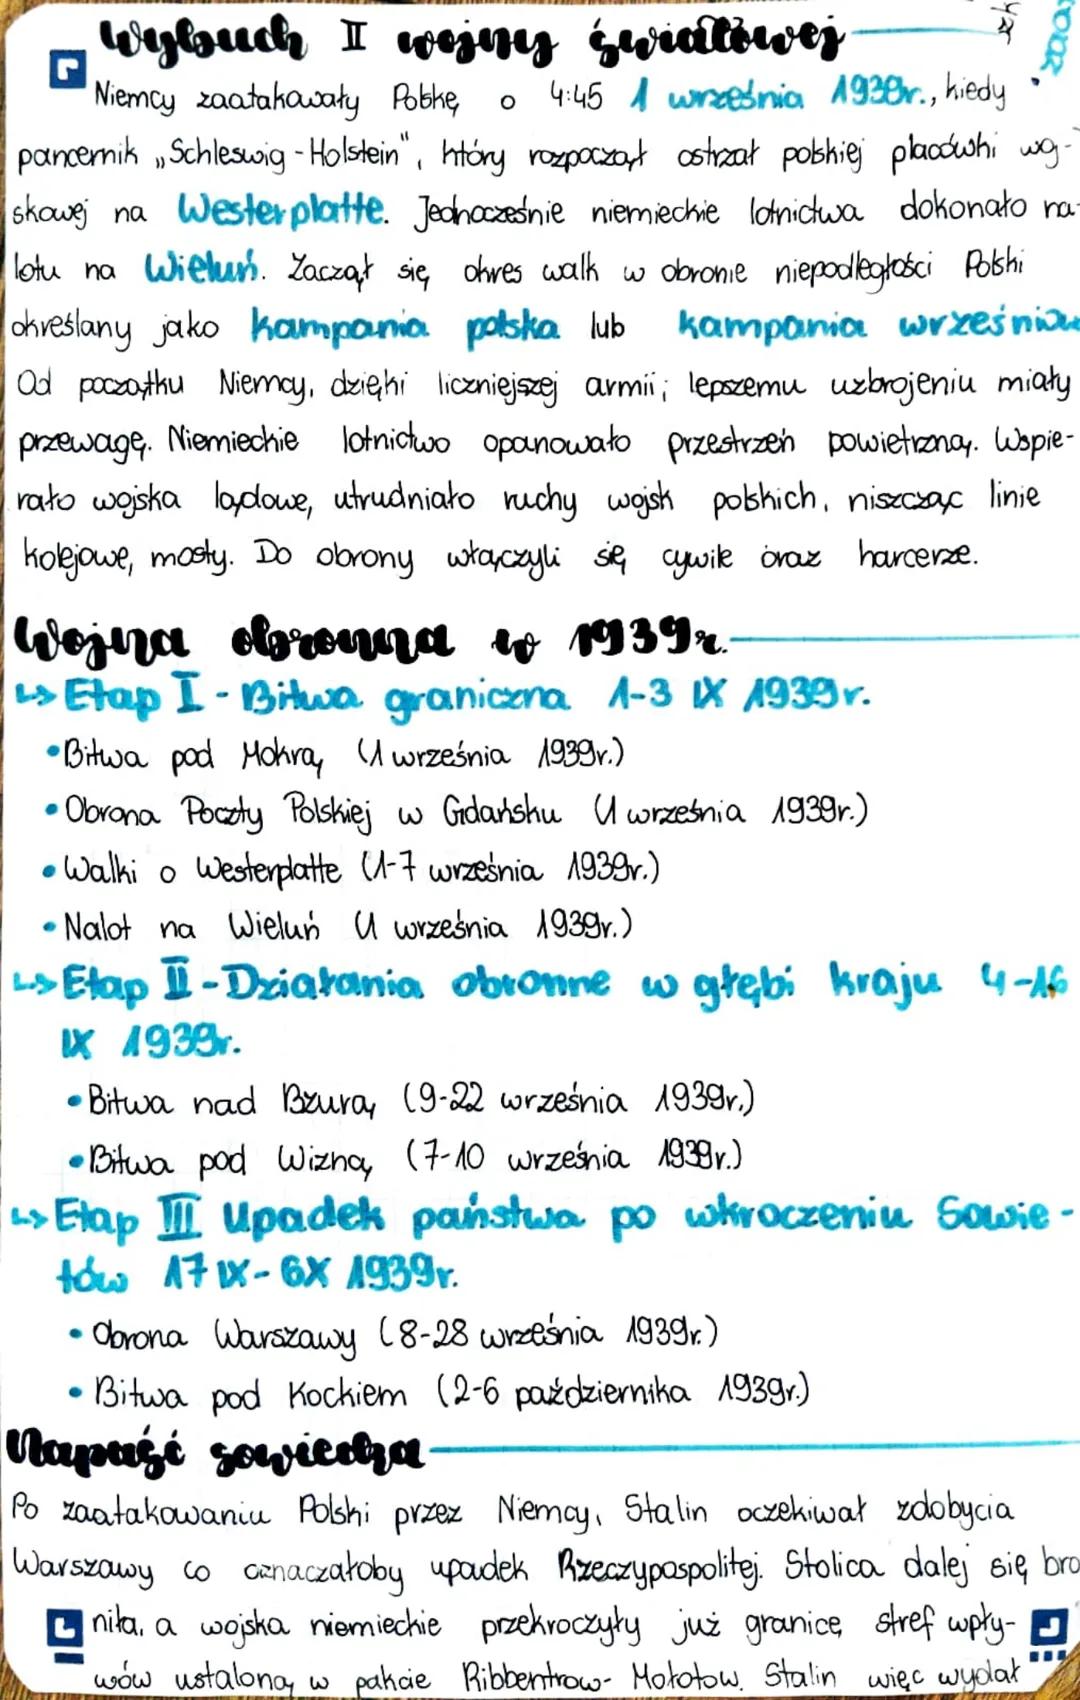 Wybuch II wojny światowej
Niemcy zaatakowały Polskę o 4:45 1 września 1939r., kiedy
pancernik „Schleswig-Holstein", który rozpoczął ostrzał polskiej placówki woj-
skowej na Westerplatte. Jednocześnie niemieckie lotnictwa dokonało na-
lotu na Wieluń. Zaczął się okres walk w obronie niepodległości Polski
określany jako kampania polska lub kampania wrześniow
Od początku Niemcy, dzięki liczniejszej armii; lepszemu uzbrojeniu miały
przewagę. Niemieckie lotnictwo opanowało przestrzeń powietrzną. Wspie-
rało wojska lądowe, utrudniało ruchy wojsk polskich, niszcząc linie
kolejowe, mosty. Do obrony włączyli się cywile oraz harcerze.
Wojna obronna w 1939r.
↳ Etap I - Bitwa graniczna 1-3 IX 1939r.
• Bitwa pod Mokrą (1 września 1939r.)
• Obrona Poczty Polskiej w Gdańsku (1 września 1939r.)
• Walki o Westerplatte (1-7 września 1939r.)
• Nalot na Wieluń (1 września 1939r.)
↳ Etap II - Działania obronne w głębi kraju 4-16
IX 1939r.
• Bitwa nad Bzurą (9-22 września 1939r.)
• Bitwa pod Wizną (7-10 września 1939r.)
↳ Etap III Upadek państwa po wkroczeniu Sowie-
tów 17 IX - 6X 1939r.
• Obrona Warszawy (8-28 września 1939r.)
• Bitwa pod Kockiem (2-6 października 1939r.)
Napaść sowiecka
Po zaatakowaniu Polski przez Niemcy, Stalin oczekiwał zdobycia
Warszawy co oznaczałoby upadek Rzeczypospolitej. Stolica dalej się bro
niła, a wojska niemieckie przekroczyły już granicę stref wpły-
wów ustaloną w pakcie Ribbentrow-Mołotow. Stalin więc wydał